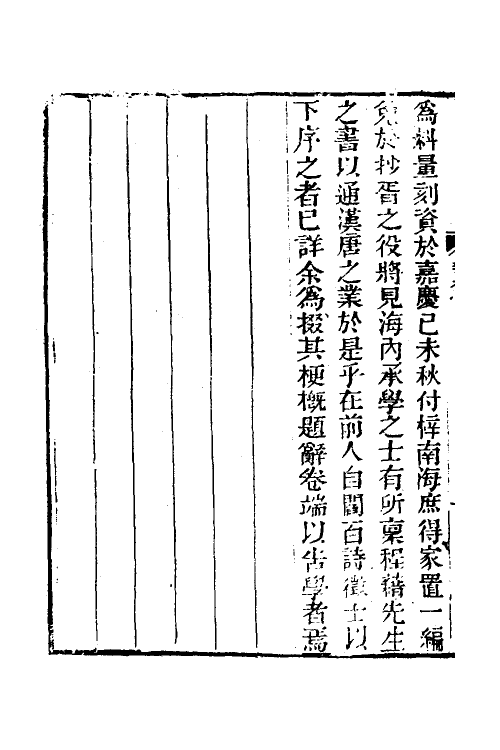 為料量刻資於嘉慶己未秋付梓南海庶得家置一編
免於抄胥之役將見海內承學之士有所稟程藉先生
之書以通漢唐之業於是乎在前人自閻百詩徵士以
下序之者已詳余為掇其梗概題辭卷端以告學者焉